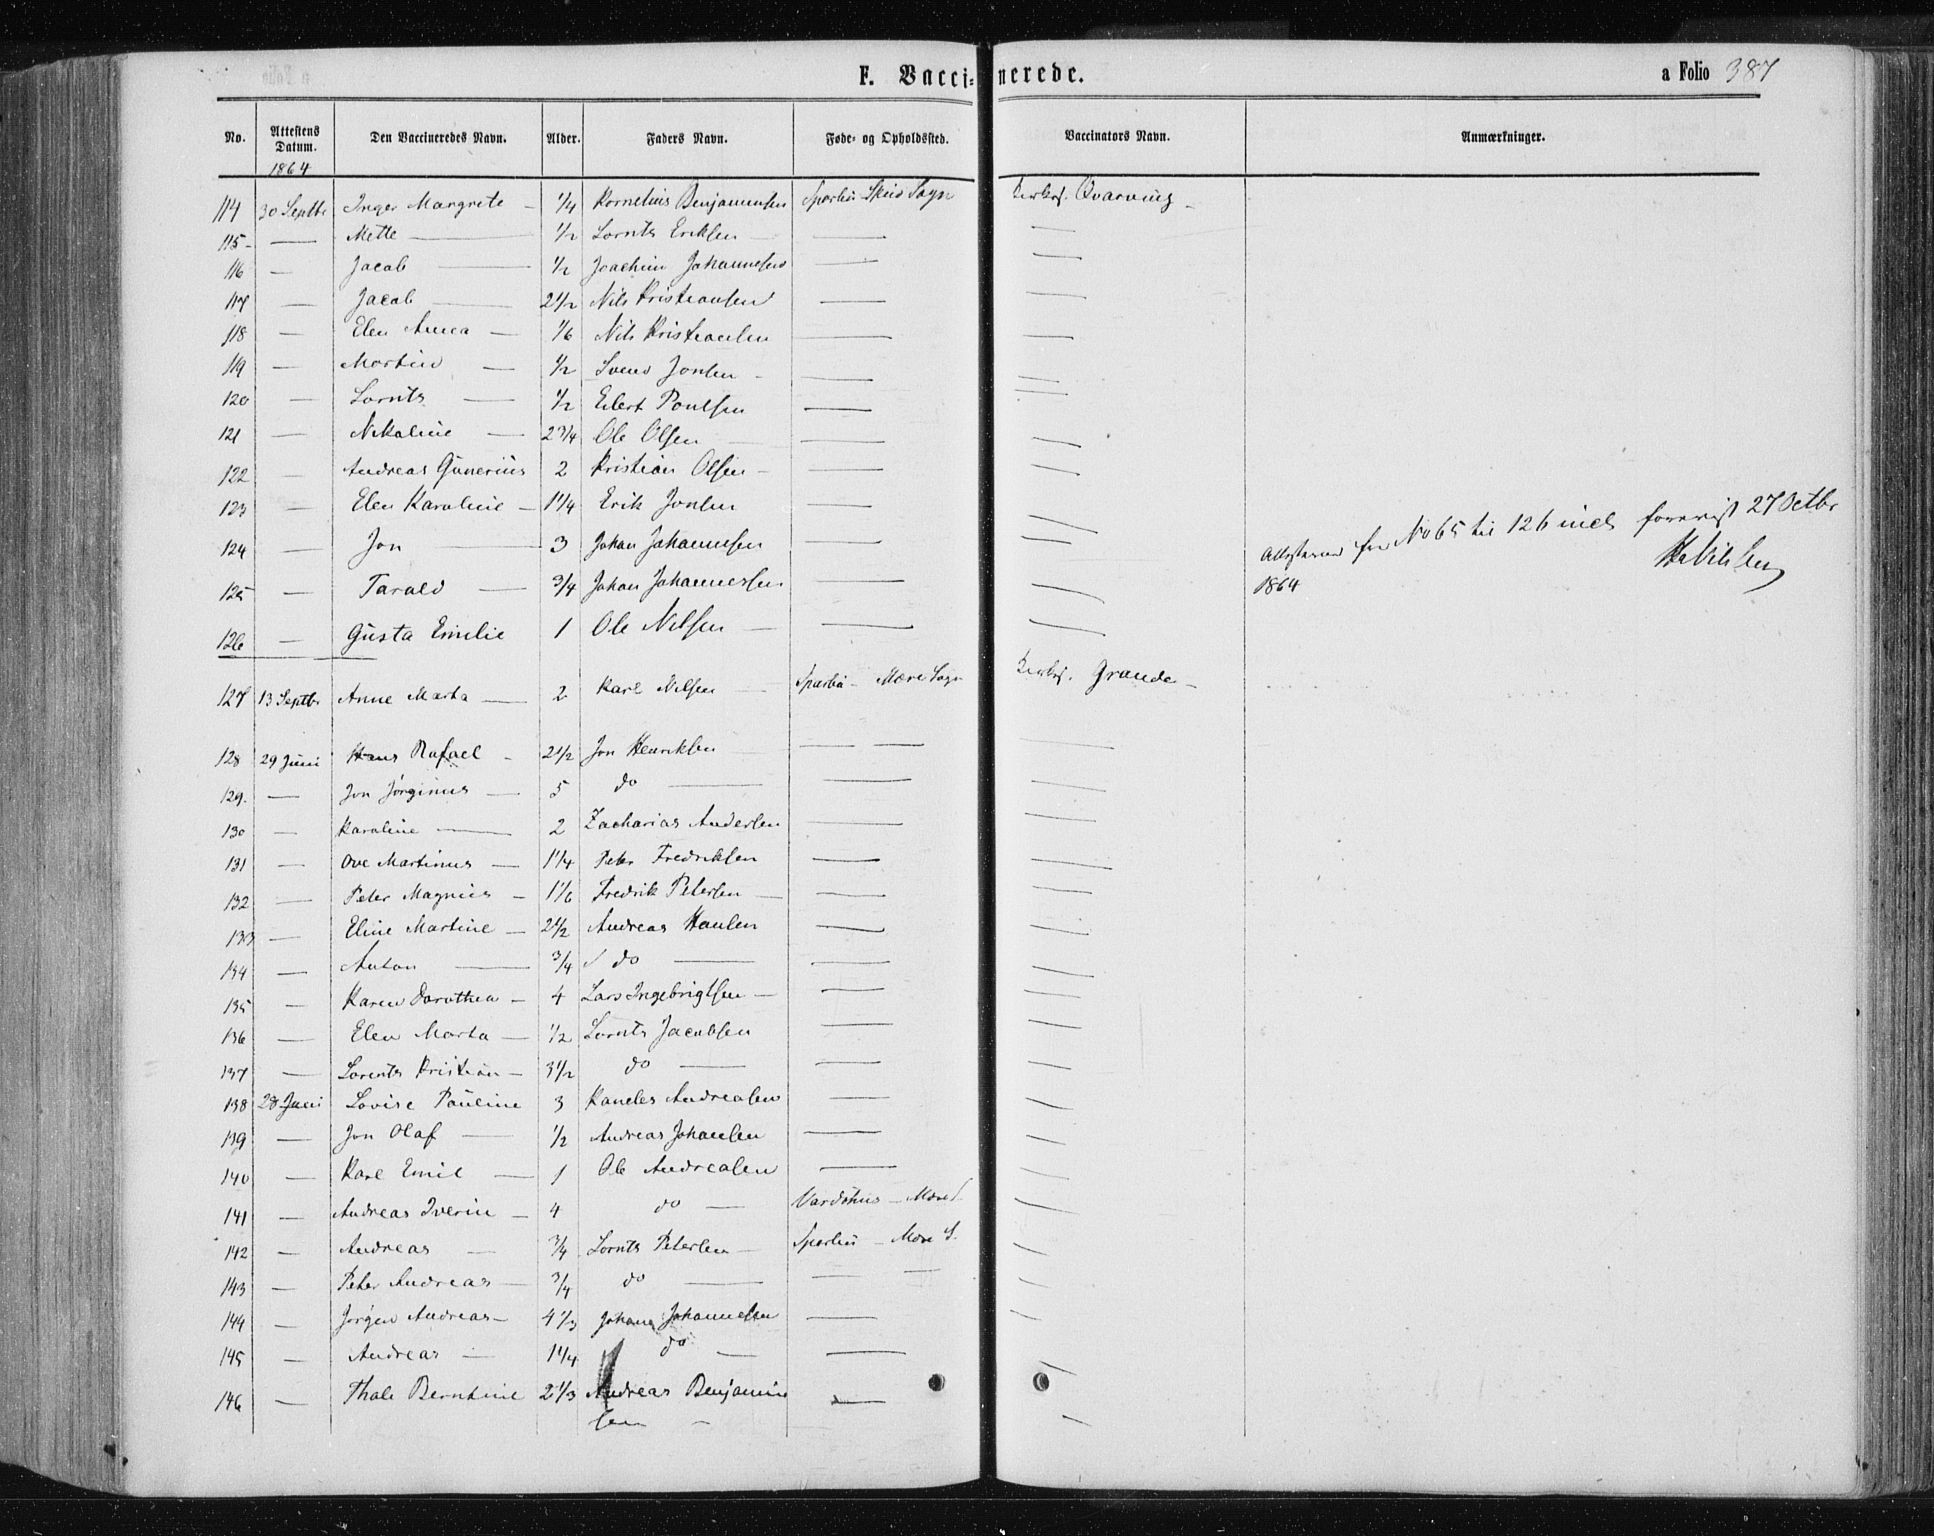 F. Vaccinerede.
a Folio 387
No. Attestens Datum. Den Vaccineredes Navn. Alder. Faders Navn. Føde- og Opholdssted. Vaccinators Navn. Anmærkninger.
1864
114 30 Septbr Inger Margrete — 1/4 Kornelius Benjaminsen Sparbu Skeis Sogn Qvarving —
115 — Mette — 1/2 Lornts Eriksen — — —
116 — Jacob — 1/2 Joachim Johannesen — —
117 — Jacob — 2 1/2 Nils Kristiansen — —
118 — Elen Anna — 1/6 Nils Kristiansen — —
119 — Martin — 1/2 Svend Jonsen — — —
120 — Lornts — 1/2 Eilert Poulsen — —
121 — Nikoline — 2 3/4 Ole Olsen — — —
122 — Andreas Gunerius 2 Kristian Olsen — — —
123 — Elen Karoline — 1 1/4 Erik Jonsen — —
124 — Jon — 3 Johan Johannesen — —
125 — Tarald — 3/4 Johan Johannessen — —
126 — Gusta Emilie 1 Ole Nilsen — — —
for No 65 til 126 incl 27 Octbr
1864
127 13 Septbr Anne Marta — 2 Karl Nilsen — Sparbu — Mære Sogn Grande —
128 29 Juni Hans Rafael — 2 1/2 Jon Henriksen — — — —
129. — Jon Jørginus — 5 do — — —
130 — Karoline — 2 Zacharias Andersen — —
131 — Ove Martinus — 1 1/4 Peter Fredriksen — —
132 — Peter Magnus — 1 1/6 Fredrik Petersen — — —
133 — Eline Martine — 2 1/2 Andreas Hansen — —
134 — Anton — 3/4 do — — —
135 — Karen Dorothea — 4 Lars Ingebrigtsen — — —
136 — Elen Marta — 1/2 Lornts Jacobsen — —
137 — Lorents Kristian — 3 1/2 do — — —
138 28 Juni Lovise Pauline 3 Andreasen — —
139 — Jon Olaf — 1/2 Andreas Johansen — —
140 — Karl Emil — 1 Ole Andreasen — —
141 — Andreas Iverin — 4 do — Vardøhus — Mære S. —
142 — Andreas — 3/4 Lornts Petersen — Sparbu — Mære S. —
143 — Peter Andreas — 3/4 do — — — —
144 — Jørgen Andreas — 4 1/3 Johan Johannesen — —
145 — Andreas — 1 1/4 do — — —
146 — Thale Berntine 2 1/3 Andreas Benjamin — —
sen —